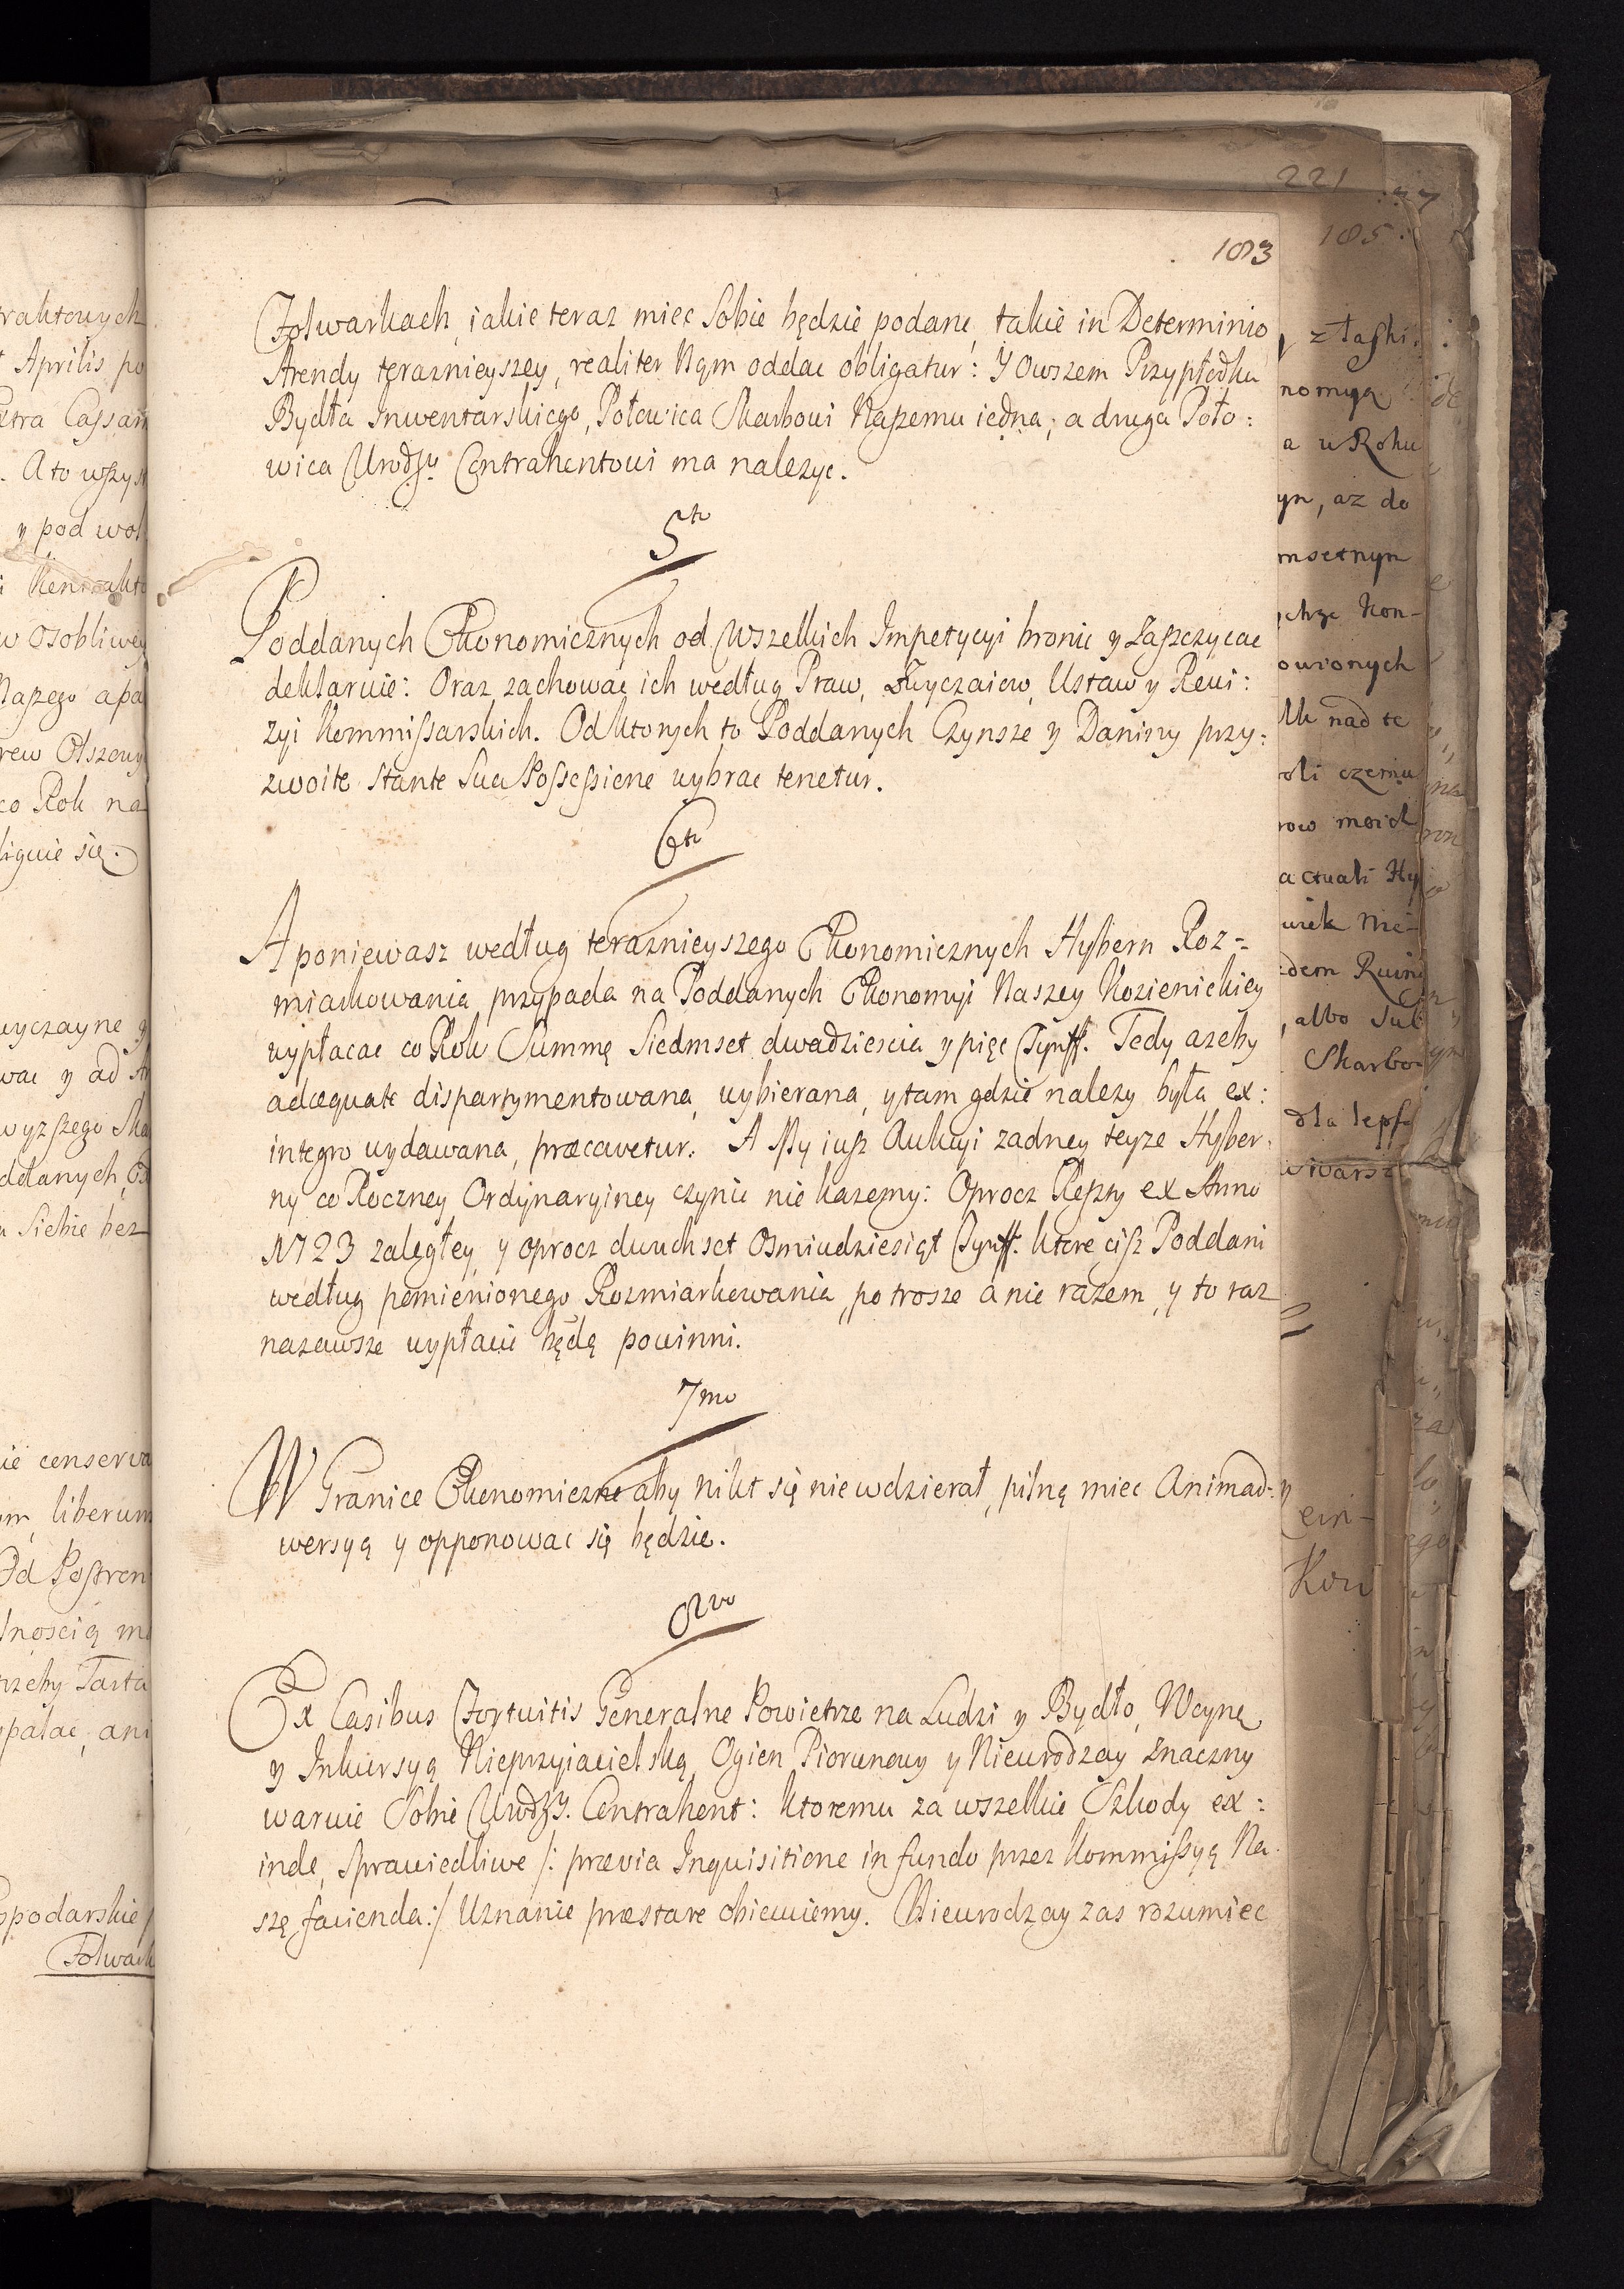 183
Folwarkach, iakie teraz miec Sobie będzie podane, takie in Determinio
Arendy teraznieyszey, realiter Nąm oddac obligatur: Y Owszem Przypłodku
Bydła Inwentarskiego, Połowica Skarbowi Naszemu iedna, a druga Poło:
wica Urodzu Contrahentowi ma nalezyc.
5to
Poddanych Ekonomicznych od Wszelkich Impetycyi bronic y Zaszczycac
deklaruie: Oraz zachowac ich według Praw, Zwyczaiow, Ustaw y Rewi:
zyi Kommissarskich. Od ktorych to Poddanych Czynsze y Daniny przy:
zwoite stante Sua Possessione wybrac tenetur.
6to
A poniewasz według teraznieyszego Ekonomicznych Hybern Roz-
miarkowania przypada na Poddanych Ekonomyi Naszey Kozienickiey
wypłacac co Rok Summę Siedmset dwadziescia y pięc Tynff. Tedy azeby
adæquate dispartymentowana, wybierana, y tam gdzie nalezy była ex:
integro wydawana, præcavetur. A My iusz Aukcyi zadney teyze Hyber:
ny co Roczney Ordynaryiney czynic nie kazemy: Oprocz Reszty ex Anno
1723 zaległey, y oprocz dwuchset Osmiudziesiąt Tynff. ktore cisz Poddani
według pomienionego Rozmiarkowania, po trosze a nie razem, y to raz
nazawsze wypłacic będą powinni.
7mo
W Granice Ekonomiczne aby nikt się nie wdzierał, pilną miec Animad-
wersyą y opponowac się będzie.
8vo
Ex Casibus Fortuitis Generalne Powietrze na Ludzi y Bydło, Woynę
y Inkursyą Nieprzyiacielską, Ogien Piorunowy y Nieurodzay znaczny
waruie Sobie Urodzy. Contrahent: ktoremu za wszelkie Szkody ex:
inde, sprawiedliwe /: prævia Inquisitione in fundo przez Kommissyą Na:
szę facienda:/ Uznanie præstare obiecuiemy. Nieurodzay zas rozumiec